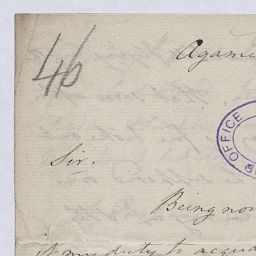 46
Agame
OFFICE
Sir.
Being now
it my duty to acqua